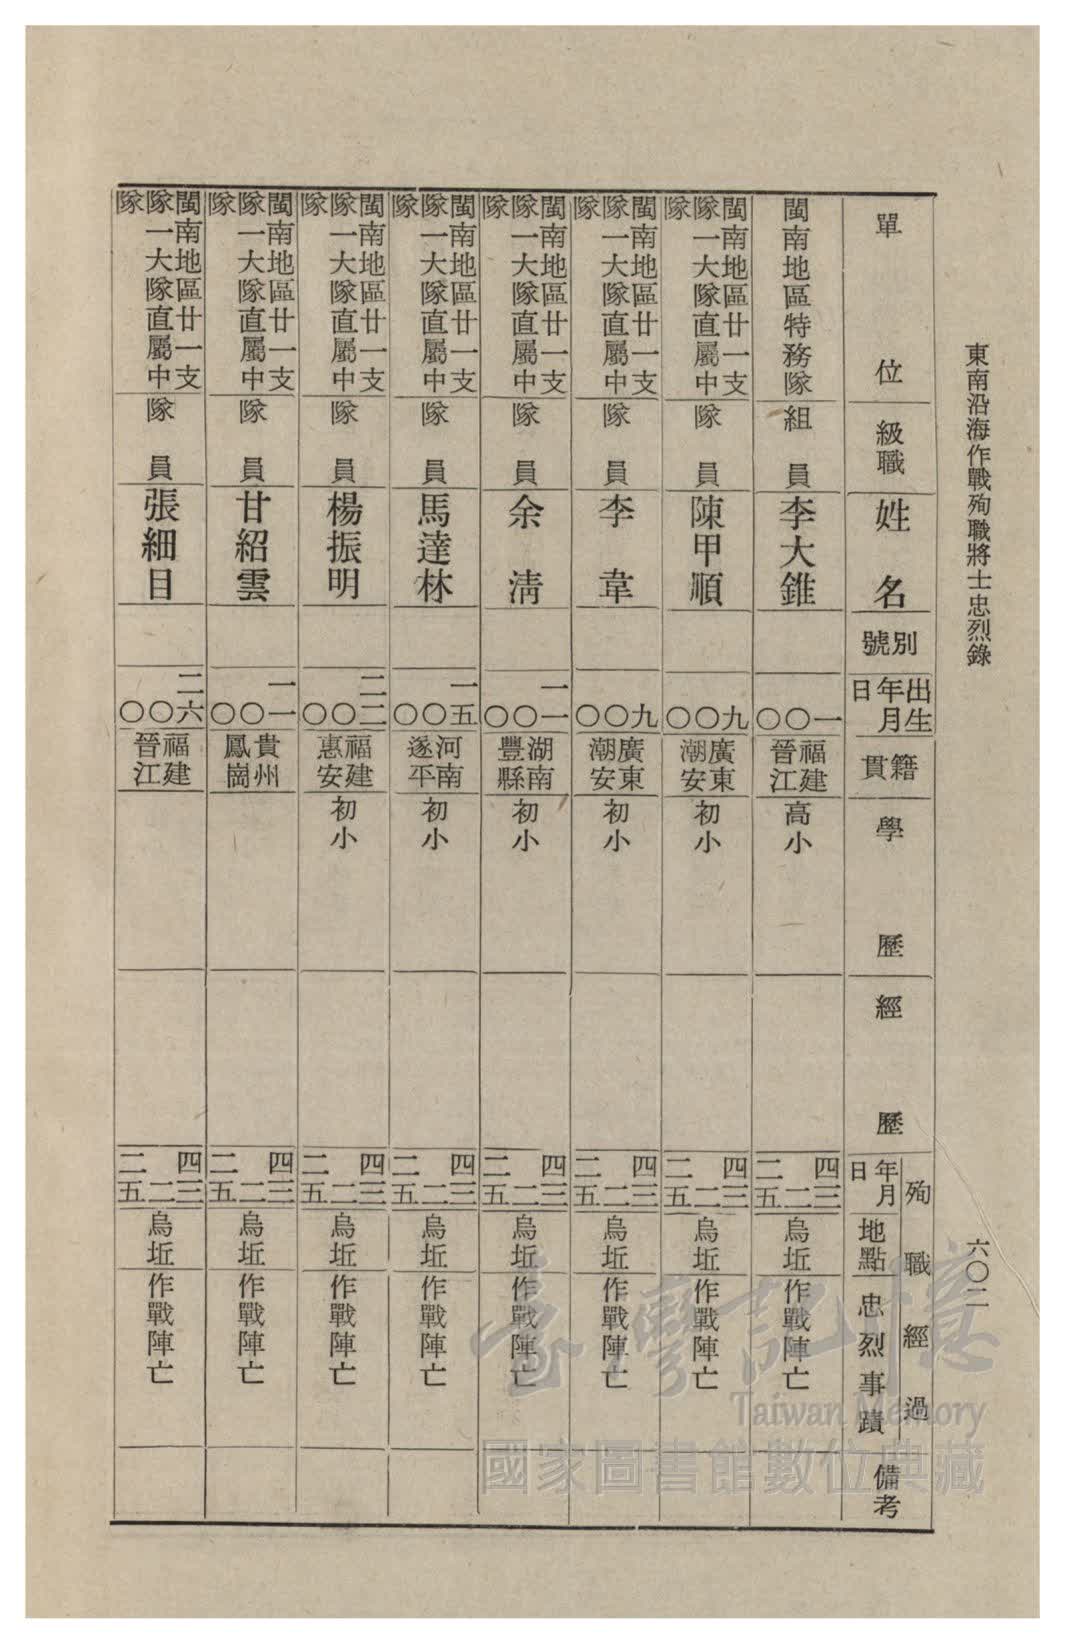 東南沿海作戰殉職將士忠烈錄
六〇二
單位
級職
姓名
別號
出生年月日
籍貫
學歷
經歷
殉職經過
年月日
地點
忠烈事蹟
備考
閩南地區特務隊
組員
李大錐
一〇〇
福建晉江
高小
四三二二五
烏坵
作戰陣亡
閩南地區廿一支
隊一大隊直屬中
隊
隊員
陳甲順
九〇〇
廣東潮安
初小
四三二二五
烏坵
作戰陣亡
閩南地區廿一支
隊一大隊直屬中
隊
隊員
李韋
九〇〇
廣東潮安
初小
四三二二五
烏坵
作戰陣亡
閩南地區廿一支
隊一大隊直屬中
隊
隊員
余清
一一〇〇
湖南豐縣
初小
四三二二五
烏坵
作戰陣亡
閩南地區廿一支
隊一大隊直屬中
隊
隊員
馬達林
一五〇〇
河南遂平
初小
四三二二五
烏坵
作戰陣亡
閩南地區廿一支
隊一大隊直屬中
隊
隊員
楊振明
二二〇〇
福建惠安
初小
四三二二五
烏坵
作戰陣亡
閩南地區廿一支
隊一大隊直屬中
隊
隊員
甘紹雲
一一〇〇
貴州鳳崗
四三二二五
烏坵
作戰陣亡
閩南地區廿一支
隊一大隊直屬中
隊
隊員
張細目
二六〇〇
福建晉江
四三二二五
烏坵
作戰陣亡
臺灣記憶
Taiwan Memory
國家圖書館數位典藏